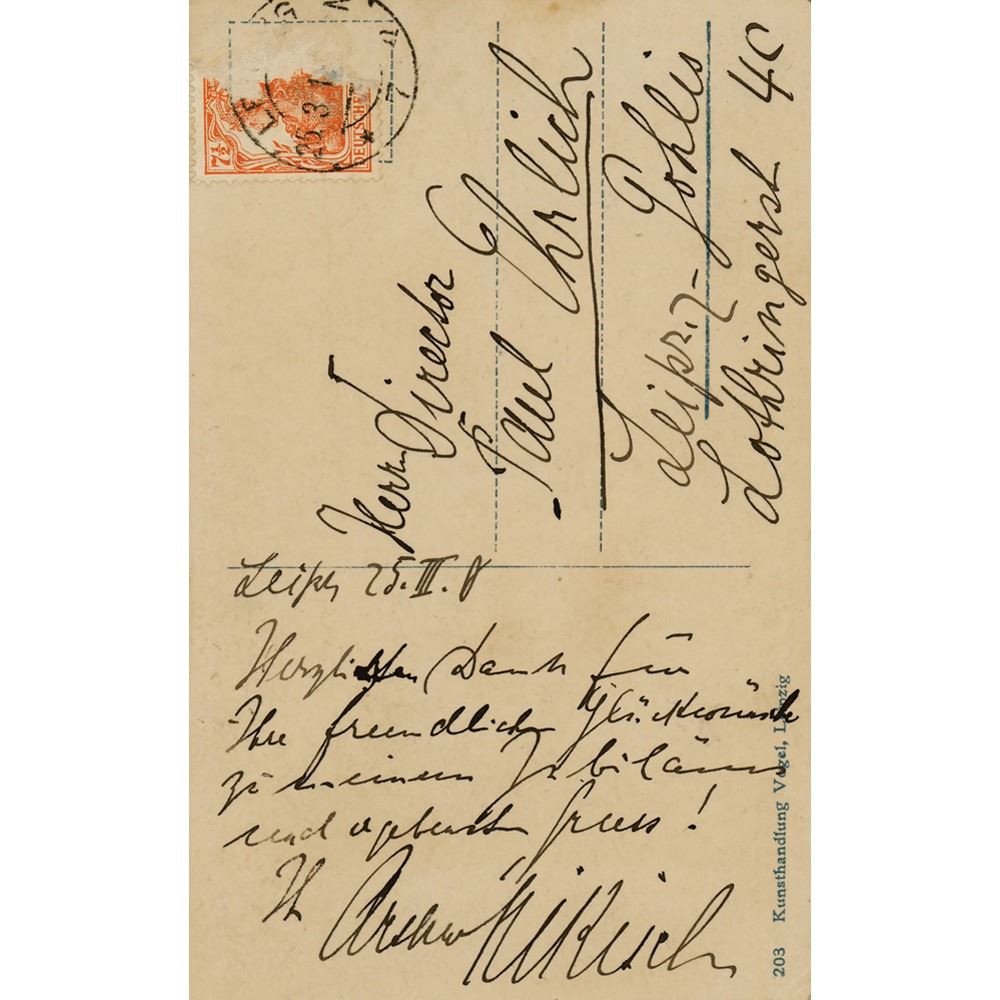 7½
DEUTSCHE
25 3 1
Herrn Director
Paul Ehrlich
Leipz.-Gohlis
Lothringerst 4C
Leipz 25.III.8
Herzlichsten Dank für
Ihre freundlichen Glückwünsche
zu meinem Jubiläum
und ergebensten Gruss!
Ihr Arthur Nikisch
203 Kunsthandlung Vogel, Leipzig